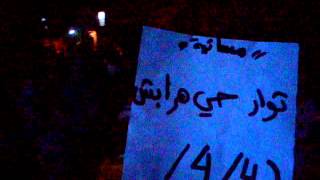 مسائية
ثوار حي هرابش